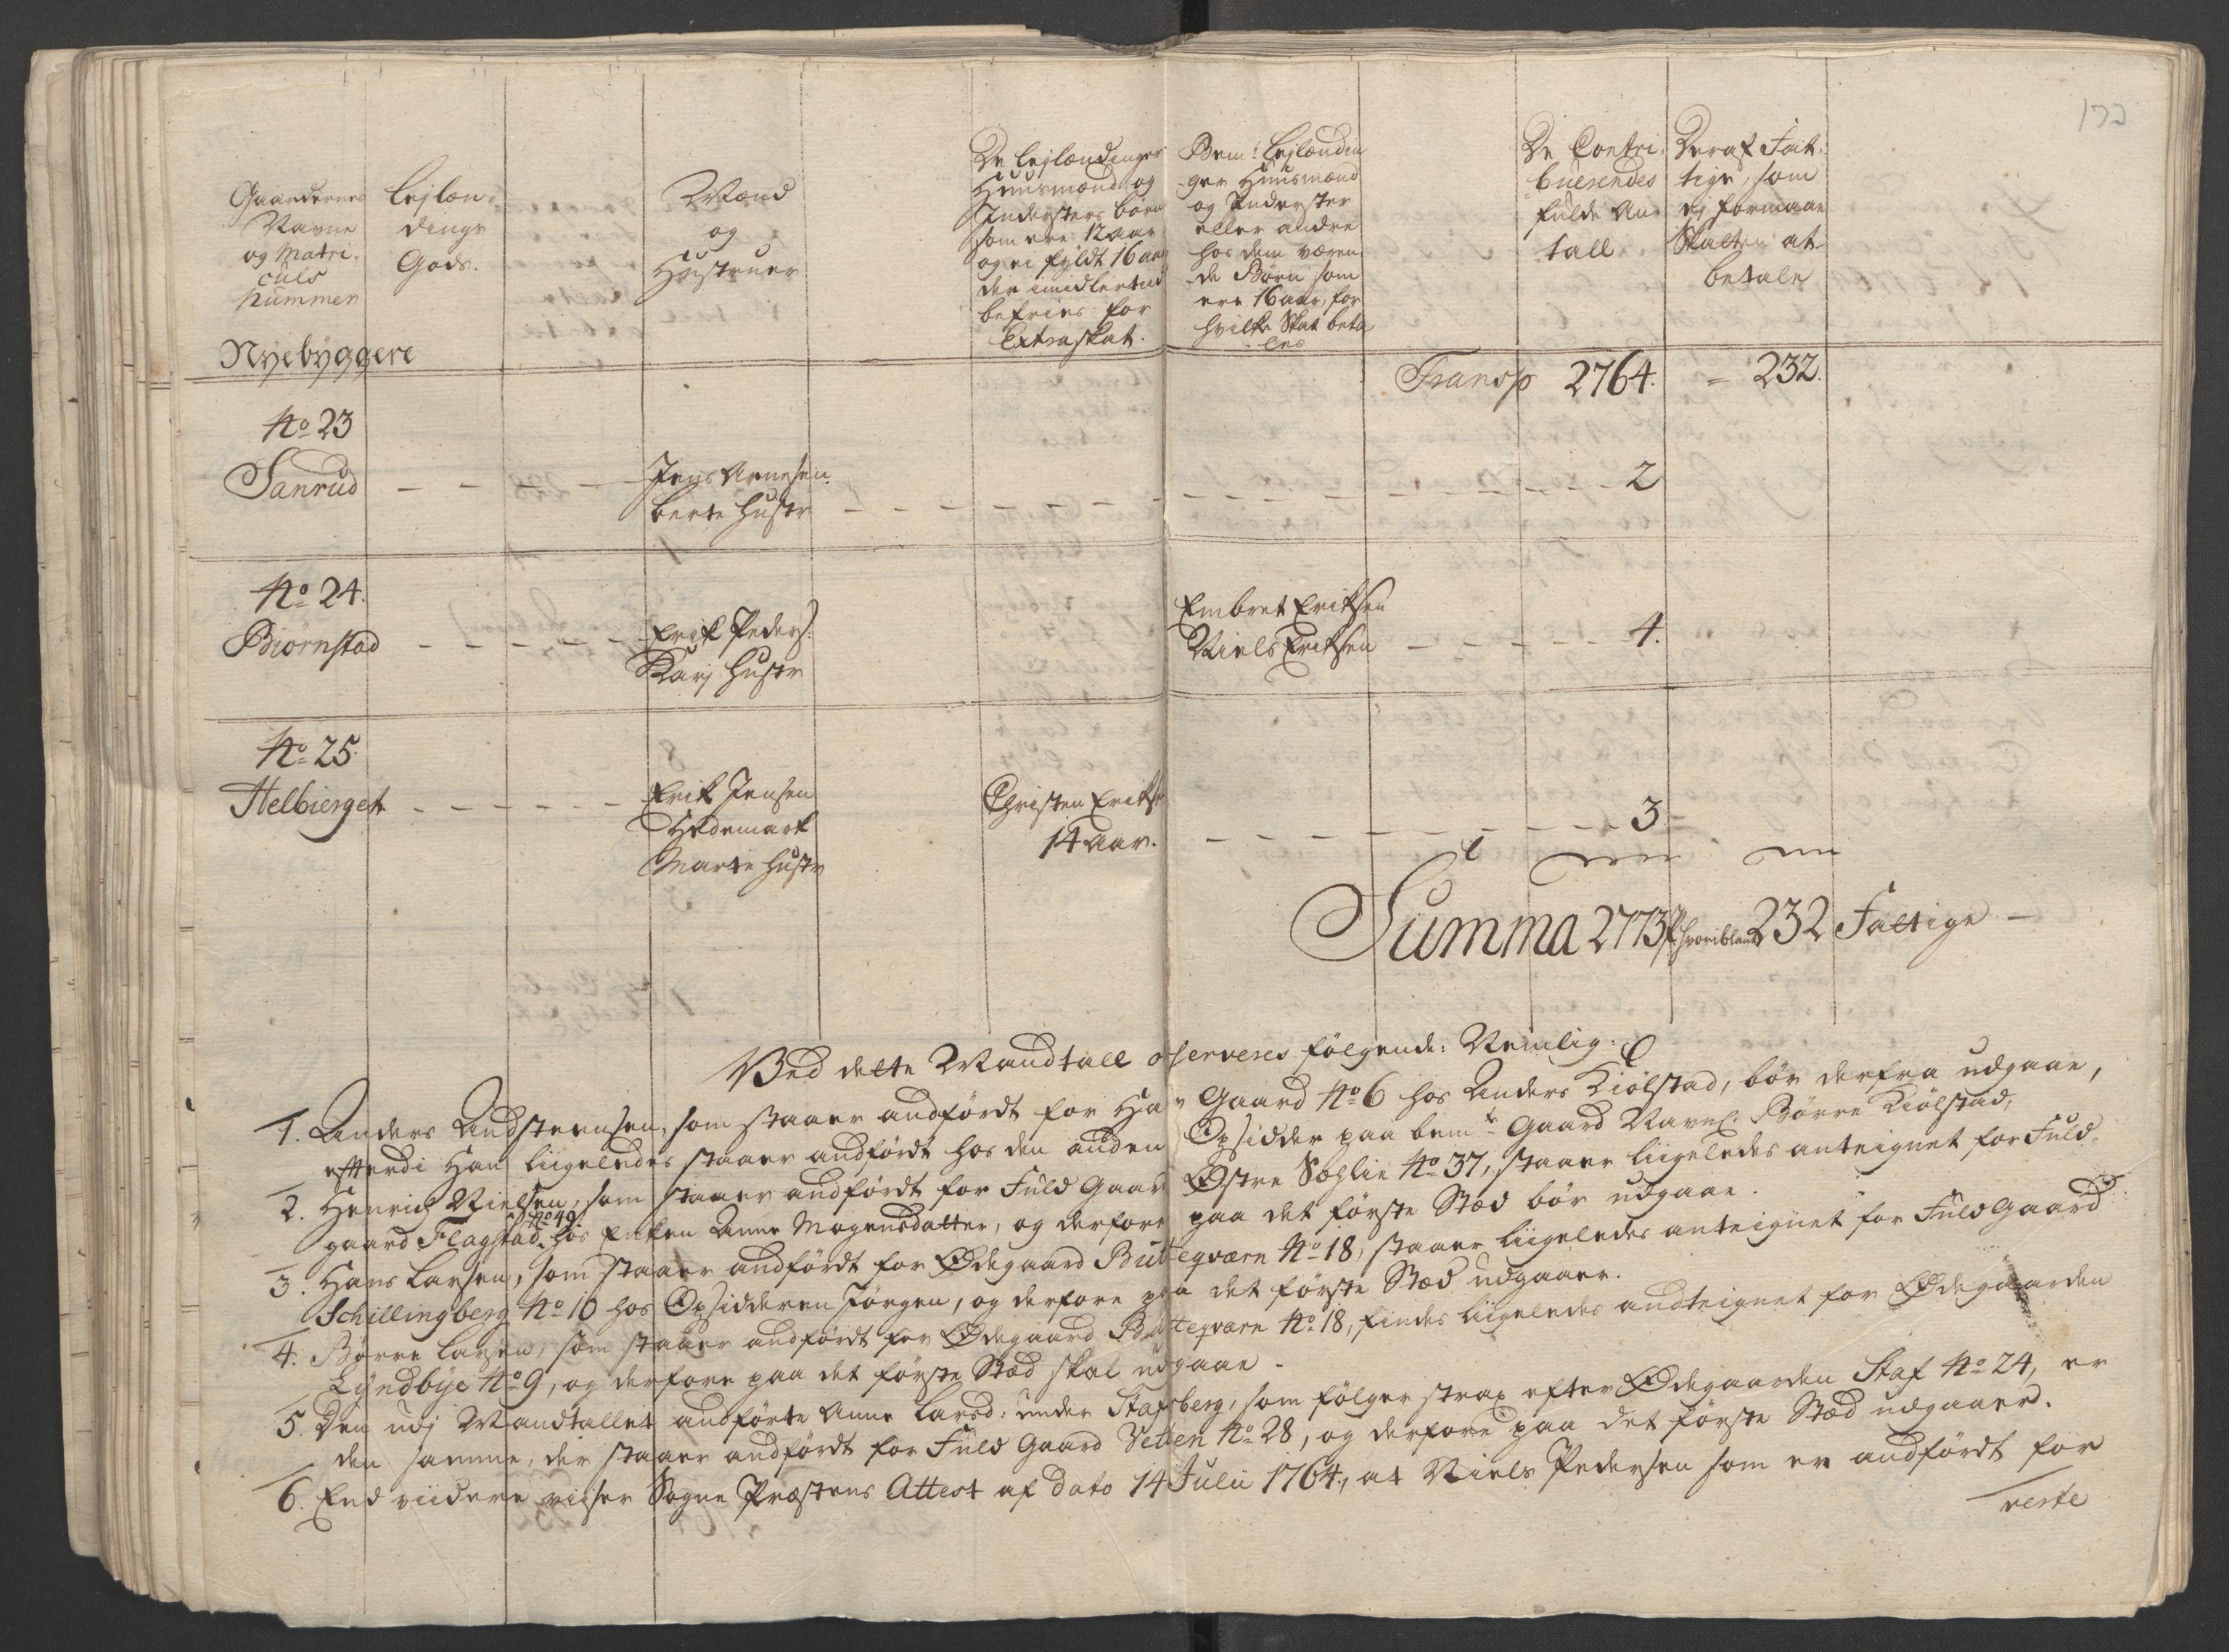 172
Gaardernes
Navne
og Matri-
culs
Nummer
Lejlæn-
dings
Gods.
Mænd
og
Hustruer
De Lejlændinger
Huusmænd og
Indersters børn
som ere 12 aar
og ei fyldt 16 aar
der imidlertiid
befries for
Extraskat.
Bem: Lejlændin
ger Huusmænd
og Inderster
eller andre
hos dem væren
de Børn som
ere 16 aar, for
hvilke Skat beta
les
De Contri-
buerendes
fulde An-
tall
Deraf Fat-
tige, som
ej formaar
Skatten at
betale
Nyebyggere
Transp 2764. - 232.
No 23
Sanrud - - - - Jens Arnesen. - - - - 2
Berte Hustr
No 24.
Biørnstad - - - - - Erik Peders: Embret Eriksen
Karj Hustr Niels Eriksen - - - - - 4.
No 25.
Helbierget - - - - - - Erik Jensen Christen Eriks: - - - - - 3
Hedemark 14 Aar.
Marte Hustr
Summa 2773 hvoriblant 232 Fattige -
Ved dette Mandtall observeres følgende: Nemlig:
1. Anders Andstensen, som staaer andført for Hans Gaard No 6 hos Anders Kiölstad, bør derfra udgaae,
efterdi Han liigeledes staaer andført hos den anden Opsidder paa bemte Gaard Navnl: Börre Kiölstad,
2. Henrich Nielsen, som staaer andført for Fuld Gaard Østre Sæhlie No 37, staaer liigeledes anteignet for Fuld-
gaard Flagstad No 49 hos Enken Anne Mogensdatter, og derfore paa det første Stæd bør udgaae.
3. Hans Larsen, som staaer andført for Ødegaard Buteqværn No 18, staaer liigeledes anteignet for Fuld Gaard
Schillingberg No 10 hos Opsidderen Jørgen, og derfore paa det første Stæd udgaaer.
4. Børre Larsen, som staaer andført for Ødegaard Buteqværn No 18, findes liigeledes andteignet for Ødegaarden
Lÿndbye No 9, og derfore paa det første Stæd skal udgaae -
5. Den udj Mandtallet andførte Anne Larsd: under Stafsberg, som følger strax efter Ødegaarden Staf No 24, er
den samme, der staaer andført for Fuld Gaard Vetten No 28, og derfore paa det første Stæd udgaaer.
6. End viidere viiser Sogne Præstens Attest af dato 14 Julii 1764, at Niels Pedersen som er andført for